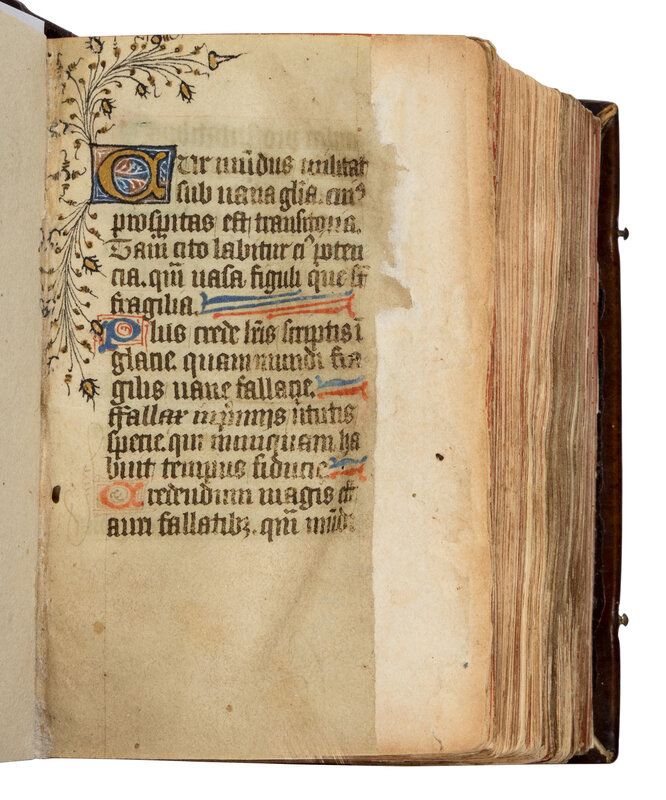 Cur mūdus militat
sub uana gl̄ia. cuiꝰ
prospitas est transitoria.
Tam cito labitur eiꝰ poten
cia. qm̄ uasa figuli que sūt
fragilia.
Plus crede lr̄is scriptis ī
glacie. quam mundi fra
gilis uane fallacie.
ffallax inp̄mijs ūtutis
specie. qui nunquam ha
buit tempus fiducie.
Credendum magis est
auri fallatibꝫ. qm̄ mūdi